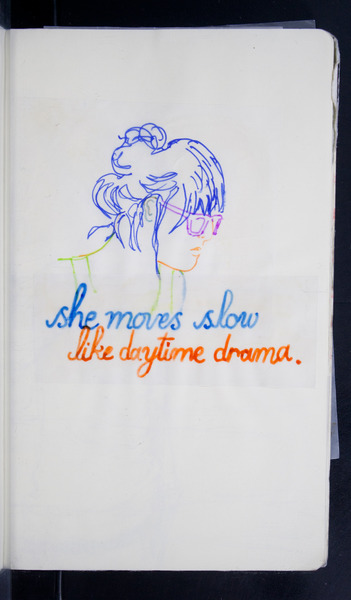 she moves slow
like daytime drama.